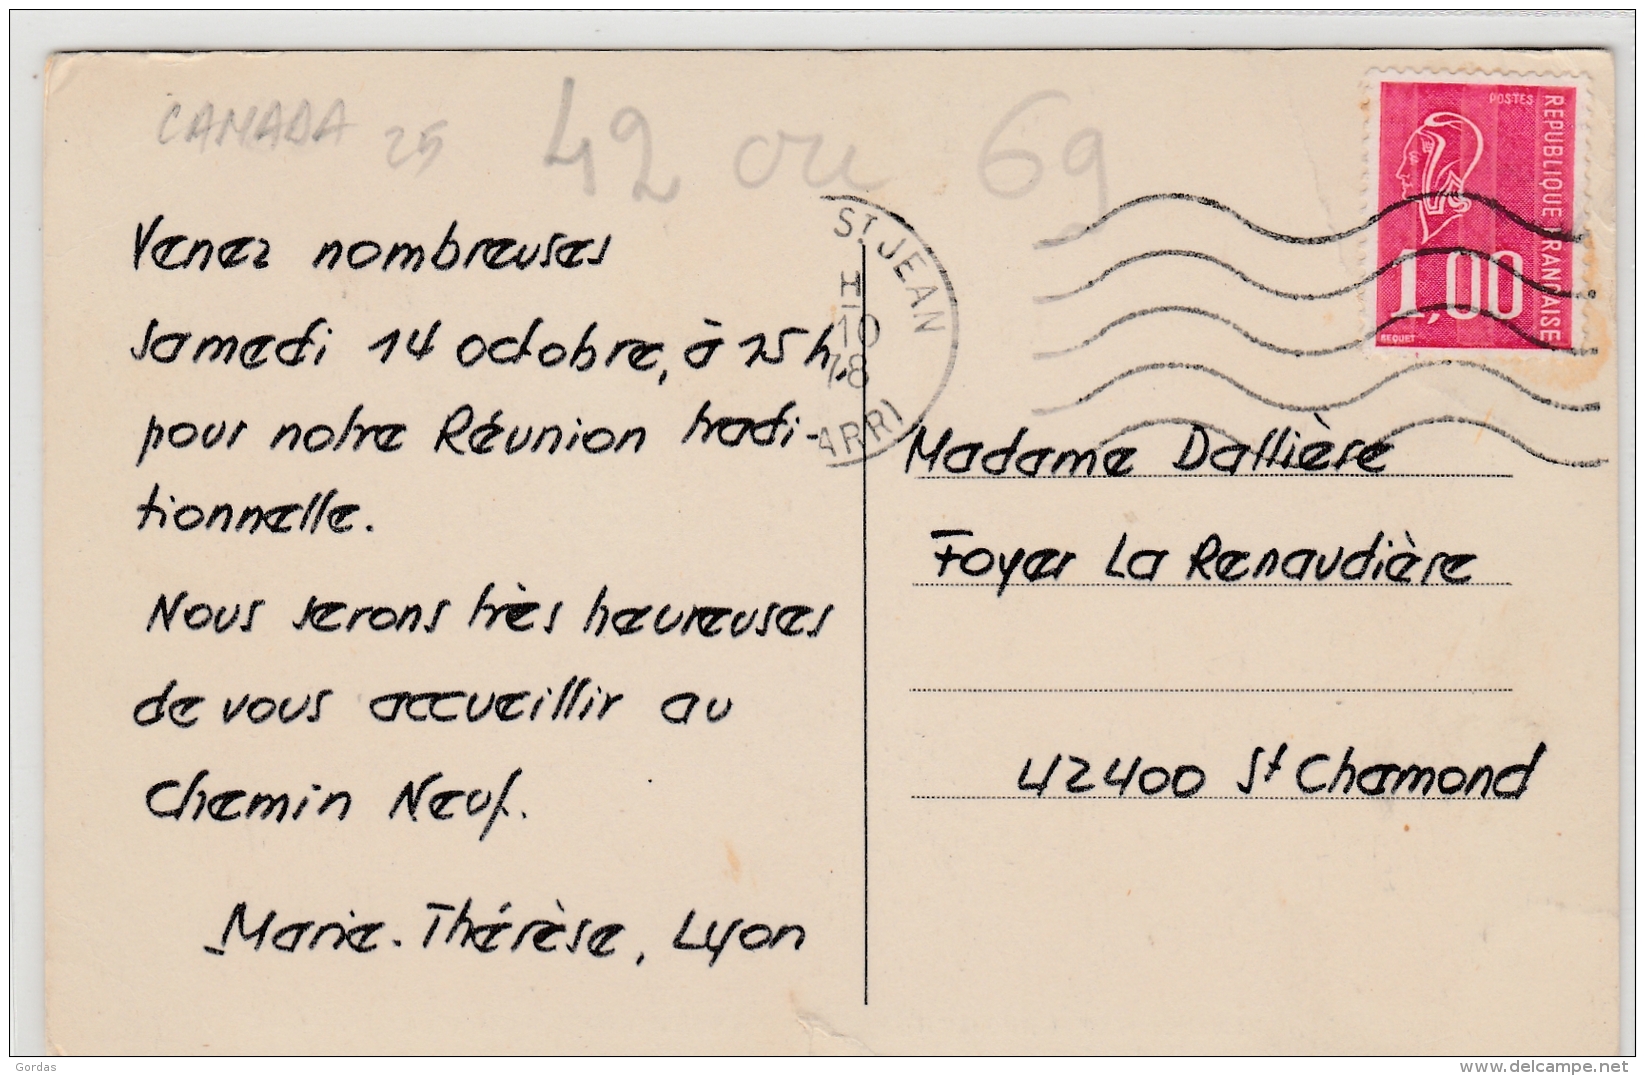 CANADA 25 42 ou 69
POSTES
REPUBLIQUE FRANCAISE
1,00
BEQUET
ST JEAN
10
78
ARRI
Venez nombreuses
samedi 14 octobre, à 15h,
pour notre Réunion tradi-
tionnelle.
Nous serons très heureuses
de vous accueillir au
Chemin Neuf.
Marie-Thérèse, Lyon
Madame Dallière
Foyer La Renaudière
42400 St Chamond
Gordas
www.delcampe.net